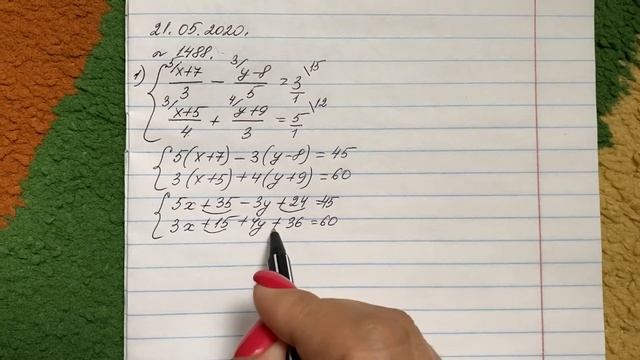 21.05.2020.
№ 1488.
1) { ⁵⁄ (x+7)/3 − ³⁄ (y−8)/5 = 3/1 \15
³⁄ (x+5)/4 + ⁴⁄ (y+9)/3 = 5/1 \12
{ 5(x+7) − 3(y−8) = 45
3(x+5) + 4(y+9) = 60
{ 5x + 35 − 3y + 24 = 45
3x + 15 + 4y + 36 = 60